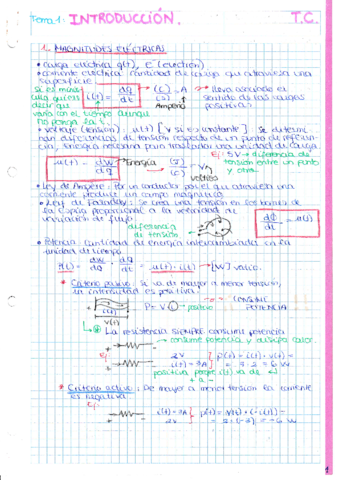 Tema 1: INTRODUCCIÓN. T.C.
1. MAGNITUDES ELÉCTRICAS
• Carga eléctrica q(t), e⁻ (electrón)
• Corriente eléctrica: cantidad de carga que atraviesa una
superficie.
dq / dt (C) / (s) = A
Amperio
lleva asociado el
sentido de las cargas
positivas.
varía con el tiempo aunque
no ponga la t.
• Voltaje (tensión): u(t) [V si es constante]: Se determi-
nan diferencias de tensión respecto de un punto de referen-
cia, Energía necesaria para trasladar una unidad de carga.
u(t) = dW / dq Energía (J) / (C) = V
Voltio
Ej: 5V → diferencia de
tensión entre un punto
y otro.
• Ley de Ampère: Por un conductor por el que atraviesa una
corriente produce un campo magnético.
• Ley de Faraday: Se crea una tensión en los bornes de
la espira proporcional a la velocidad de
variación de flujo.
dΦ / dt = u(t)
diferencia
de tensión.
• Potencia: Cantidad de energía intercambiada en la
unidad de tiempo.
P(t) = dW / dq · dq / dt = u(t) · i(t) → [W] vatio.
* Criterio pasivo: Si va de mayor a menor tensión,
la intensidad es positiva.
i(t)
v(t)
P = V · I → positivo
CONSUME
POTENCIA
La resistencia SIEMPRE consume potencia
→ consume potencia y disipa calor.
Ej:
2V
i(t) = 3A
p(t) = i(t) · v(t) =
= 3 · 2 = 6 W.
positiva porque i(t) va de
+ a -
* Criterio activo: De mayor a menor tensión la corriente
es negativa.
Ej:
i(t) = 3A
2V
p(t) = v(t) · (-i(t)) =
= 2 · (-3) = -6 W
1